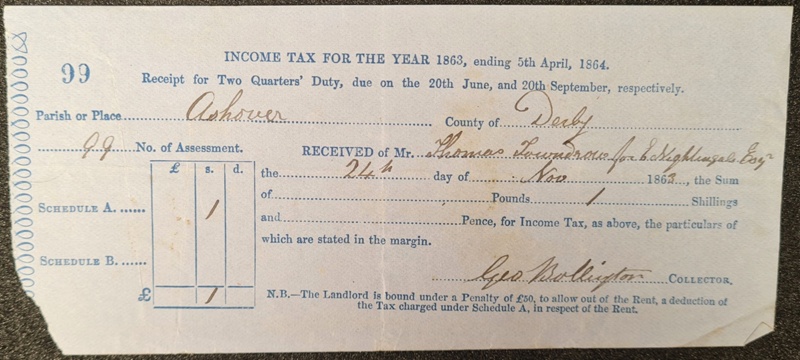 INCOME TAX FOR THE YEAR 1863, ending 5th April, 1864.
99
Receipt for Two Quarters' Duty, due on the 20th June, and 20th September, respectively.
Parish or Place Ashover County of Derby
99 No. of Assessment.
RECEIVED of Mr. Thomas Towndrow for E Nightingale Esqr
the 24th day of Nov 1863, the Sum
of Pounds 1 Shillings
and Pence, for Income Tax, as above, the particulars of
which are stated in the margin.
£ s. d.
SCHEDULE A. 1
SCHEDULE B.
£ 1
Geo Bollington COLLECTOR.
N.B.—The Landlord is bound under a Penalty of £50, to allow out of the Rent, a deduction of
the Tax charged under Schedule A, in respect of the Rent.